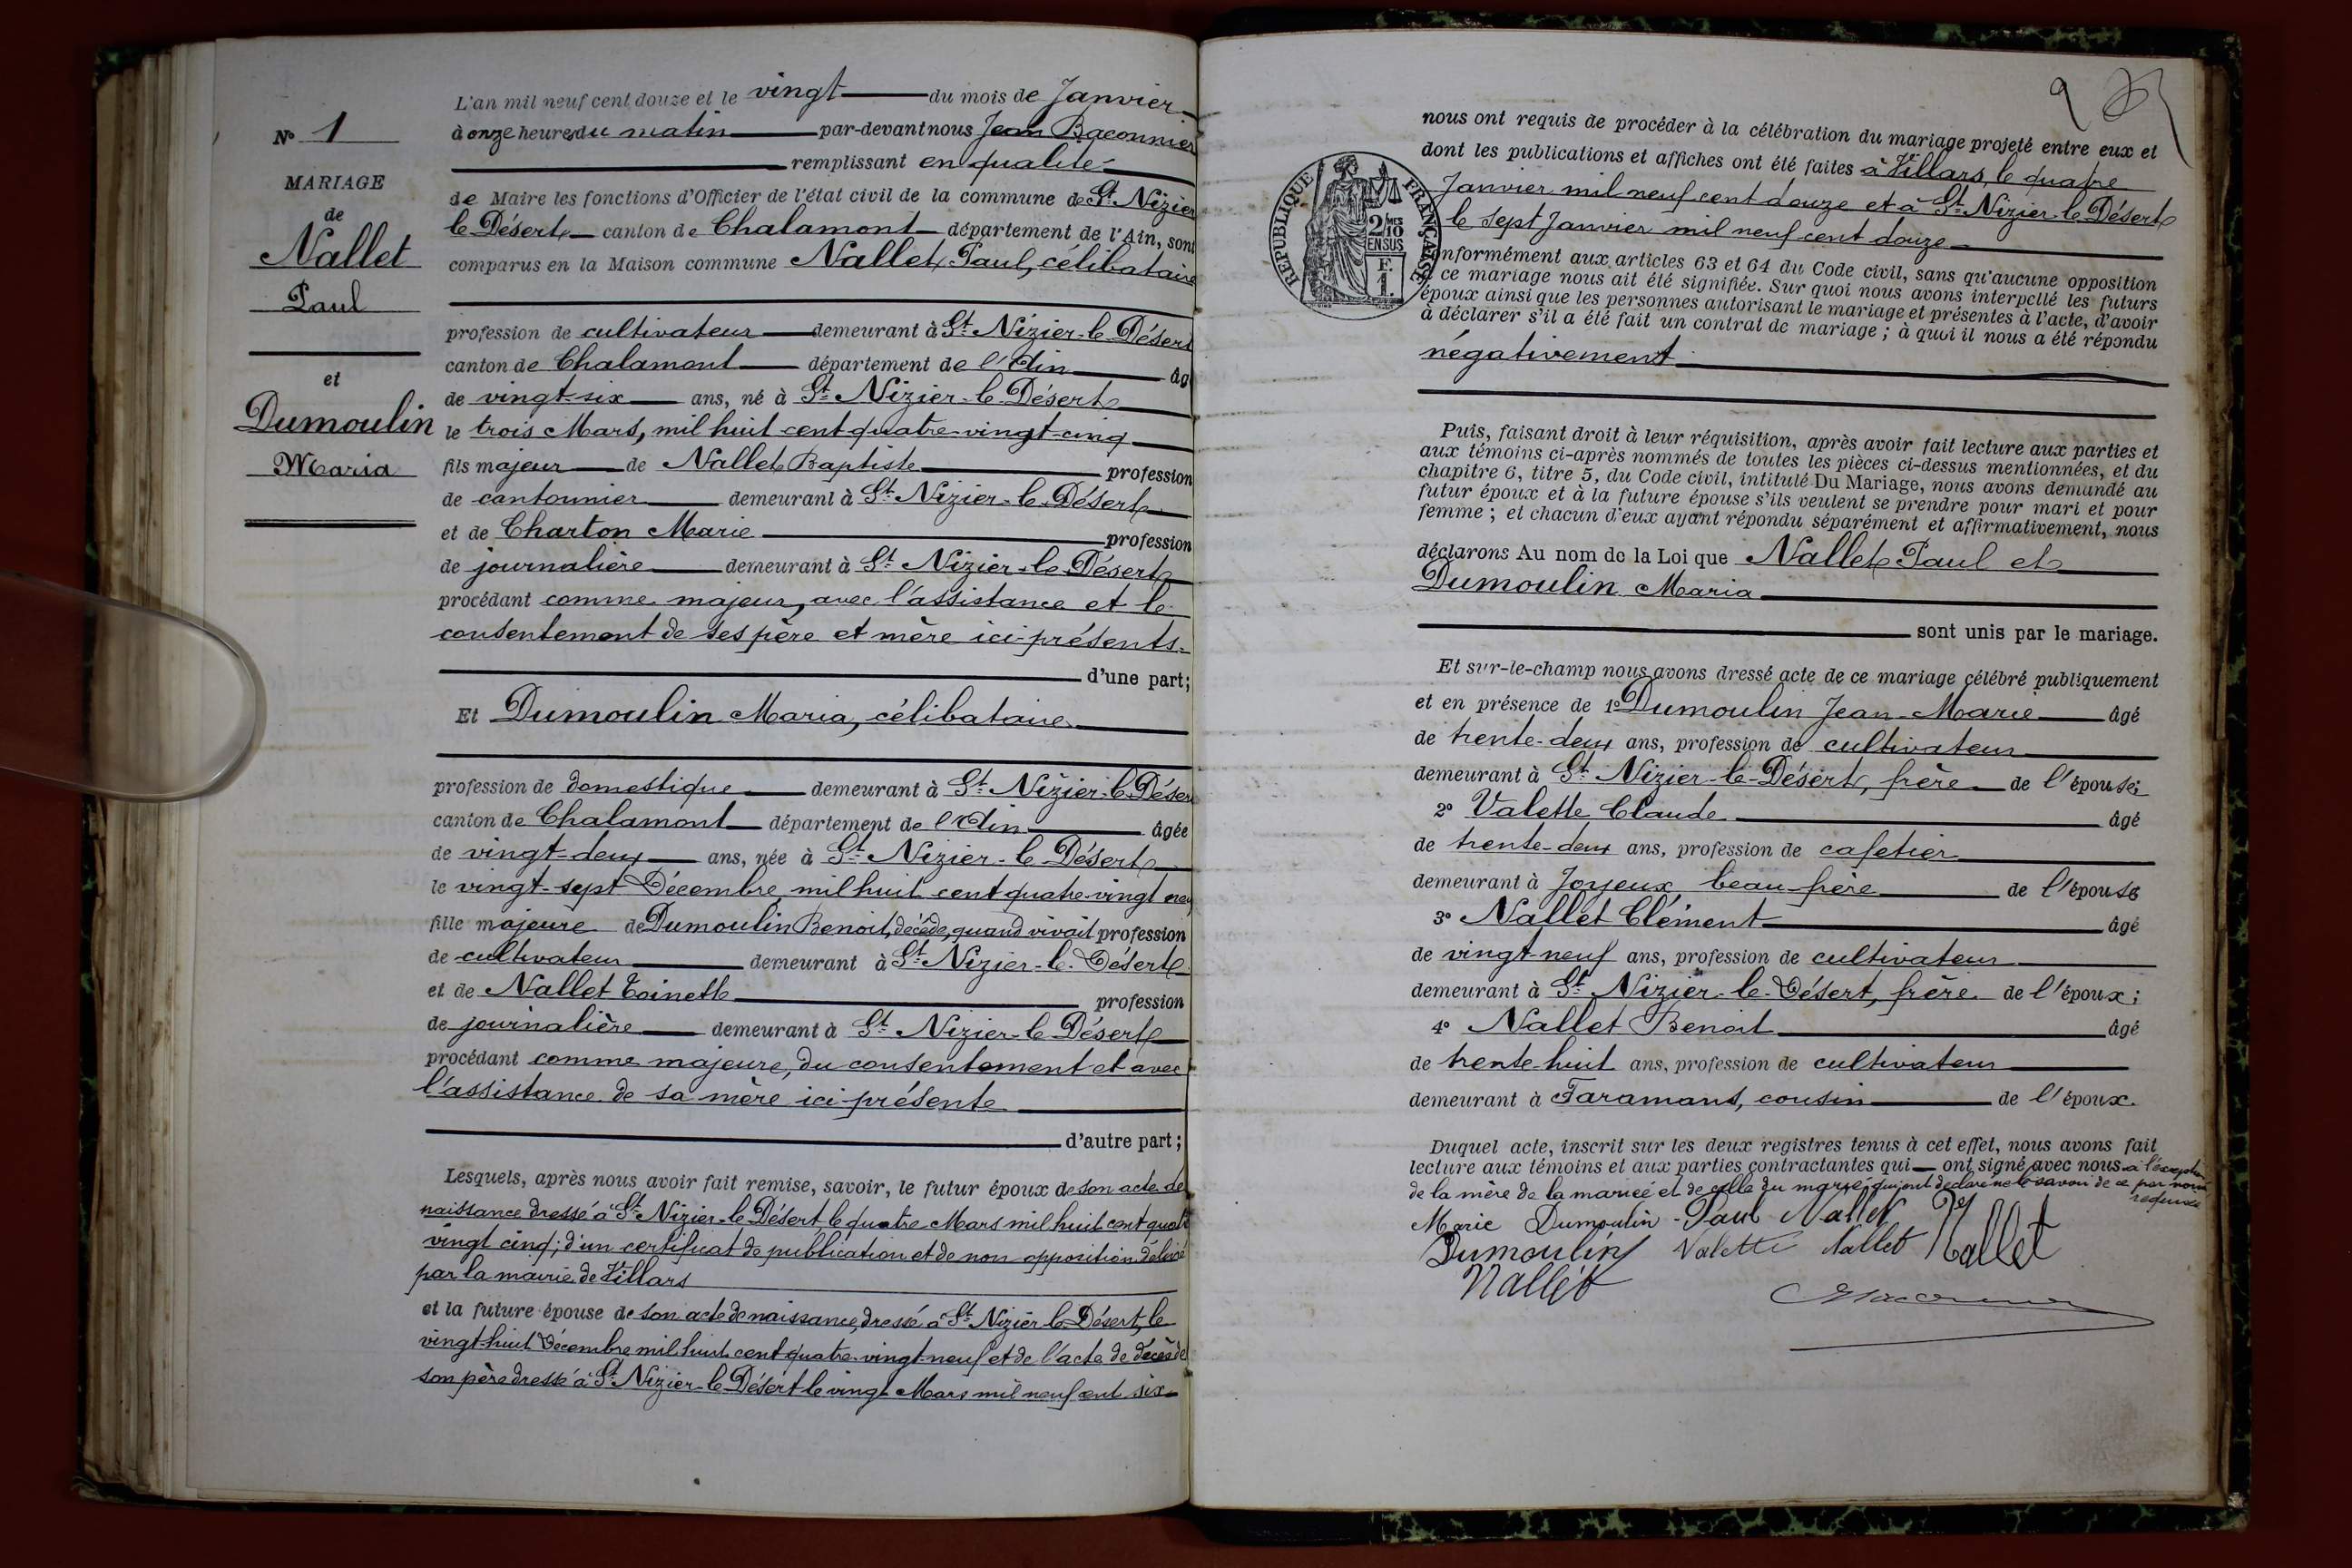 N° 1
MARIAGE
de
Nallet
Paul
et
Dumoulin
Maria
L'an mil neuf cent douze et le vingt du mois de Janvier
à onze heures du matin par-devant nous Jean Baconnier
remplissant en qualité
de Maire les fonctions d'Officier de l'état civil de la commune de St Nizier
le Désert canton de Chalamont département de l'Ain, sont
comparus en la Maison commune Nallet Paul, célibataire
profession de cultivateur demeurant à St Nizier-le-Désert
canton de Chalamont département de l'Ain âg
de vingt-six ans, né à St Nizier-le-Désert
le trois Mars, mil huit cent quatre-vingt-cinq
fils majeur de Nallet Baptiste profession
de cantonnier demeurant à St Nizier-le-Désert
et de Charton Marie profession
de journalière demeurant à St Nizier-le-Désert
procédant comme majeur, avec l'assistance et le
consentement de ses père et mère ici présents
d'une part;
Et Dumoulin Maria, célibataire
profession de domestique demeurant à St Nizier-le-Déser
canton de Chalamont département de l'Ain âgée
de vingt-deux ans, née à St Nizier-le-Désert
le vingt-sept Décembre mil huit cent quatre-vingt neuf
fille majeure de Dumoulin Benoit, décédé, quand vivait profession
de cultivateur demeurant à St Nizier-le-Désert
et de Nallet Toinette profession
de journalière demeurant à St Nizier-le-Désert
procédant comme majeure, du consentement et avec
l'assistance de sa mère ici présente
d'autre part;
Lesquels, après nous avoir fait remise, savoir, le futur époux de son acte de
naissance dressé à St Nizier-le-Désert le quatre Mars mil huit cent quatre
vingt cinq; d'un certificat de publication et de non opposition délivré
par la mairie de Villars
et la future épouse de son acte de naissance, dressé à St Nizier le Désert, le
vingt-huit Décembre mil huit cent quatre-vingt-neuf et de l'acte de décès de
son père dressé à St Nizier-le-Désert le vingt Mars mil neuf cent six
2
nous ont requis de procéder à la célébration du mariage projeté entre eux et
dont les publications et affiches ont été faites à Villars, le quatre
Janvier mil neuf cent douze et à St Nizier-le-Désert
le sept Janvier mil neuf cent douze
RÉPUBLIQUE FRANÇAISE
2/10 MES
EN SUS
F.
1.
nformément aux articles 63 et 64 du Code civil, sans qu'aucune opposition
ce mariage nous ait été signifiée. Sur quoi nous avons interpellé les futurs
époux ainsi que les personnes autorisant le mariage et présentes à l'acte, d'avoir
à déclarer s'il a été fait un contrat de mariage ; à quoi il nous a été répondu
négativement
Puis, faisant droit à leur réquisition, après avoir fait lecture aux parties et
aux témoins ci-après nommés de toutes les pièces ci-dessus mentionnées, et du
chapitre 6, titre 5, du Code civil, intitulé Du Mariage, nous avons demandé au
futur époux et à la future épouse s'ils veulent se prendre pour mari et pour
femme ; et chacun d'eux ayant répondu séparément et affirmativement, nous
déclarons Au nom de la Loi que Nallet Paul et
Dumoulin Maria
sont unis par le mariage.
Et sur-le-champ nous avons dressé acte de ce mariage célébré publiquement
et en présence de 1° Dumoulin Jean-Marie âgé
de trente-deux ans, profession de cultivateur
demeurant à St Nizier-le-Désert, frère de l'épouse;
2° Valette Claude âgé
de trente-deux ans, profession de cafetier
demeurant à Joyeux, beau-frère de l'épouse
3° Nallet Clément âgé
de vingt-neuf ans, profession de cultivateur
demeurant à St Nizier-le-Désert, frère de l'époux;
4° Nallet Benoit âgé
de trente-huit ans, profession de cultivateur
demeurant à Faramans, cousin de l'époux.
Duquel acte, inscrit sur les deux registres tenus à cet effet, nous avons fait
lecture aux témoins et aux parties contractantes qui ont signé avec nous à l'exception
de la mère de la mariée et de celle du marié, qui ont déclaré ne le savoir de ce par nous
requises
Marie Dumoulin Paul Nallet
Dumoulin Valette Nallet Nallet
Nallet